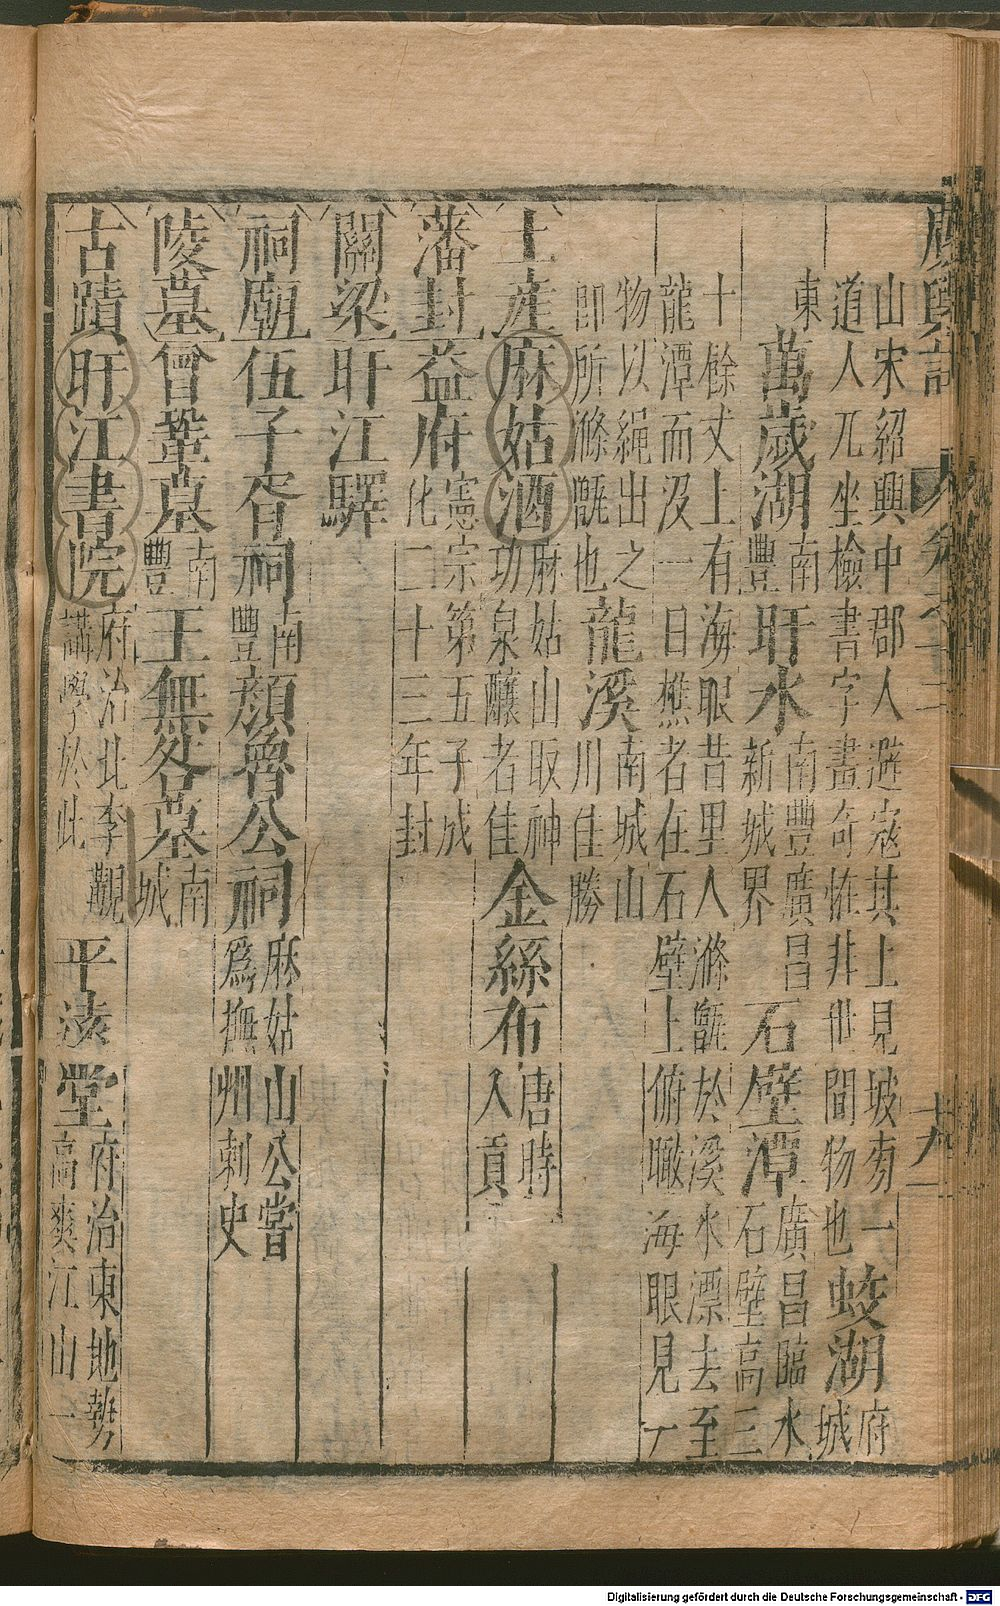 廣輿記 卷之十二 十九
山宋紹興中郡人避寇其上見坡旁一
道人兀坐檢書字畫奇恠非世間物也 蛟湖 府城
東 萬歲湖 南豐 盱水 南豐廣昌新城界 石壁潭 廣昌臨水石壁高三
十餘丈上有海眼昔里人滌甑於溪水漂去至
龍潭而沒一日樵者在石壁上俯瞰海眼見一
物以繩出之即所滌甑也 龍溪 南城山川佳勝
土產 麻姑酒 麻姑山取神功泉釀者佳 金絲布 唐時入貢
藩封 益府 憲宗第五子成化二十三年封
關梁 盱江驛
祠廟 伍子胥祠 南豐 顏魯公祠 麻姑山公嘗爲撫州刺史
陵墓 曾鞏墓 南豐 王無咎墓 南城
古蹟 盱江書院 府治北李覯講學於此 平遠堂 府治東地勢高爽江山一
Digitalisierung gefördert durch die Deutsche Forschungsgemeinschaft - DFG